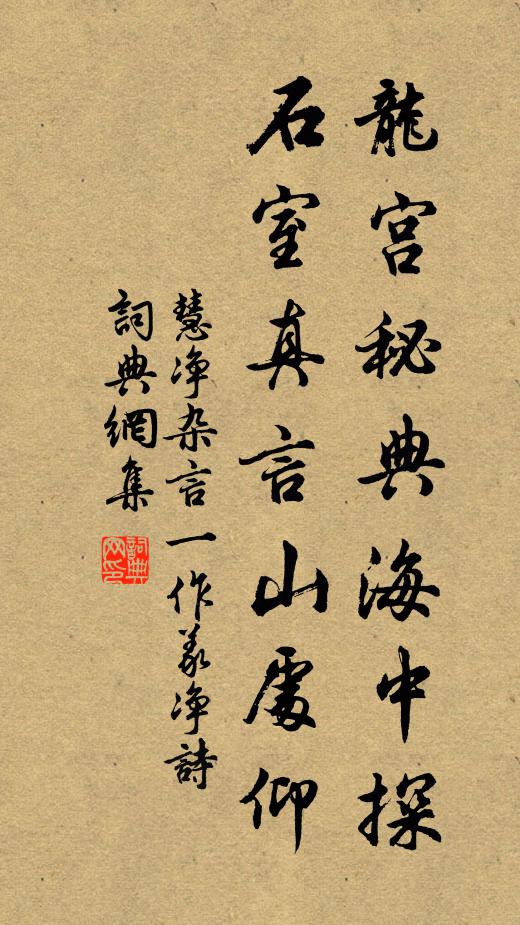 龍宮秘典海中探
石室真言山處仰
慧净杂言一作義净詩
詞典網集
詞典网印